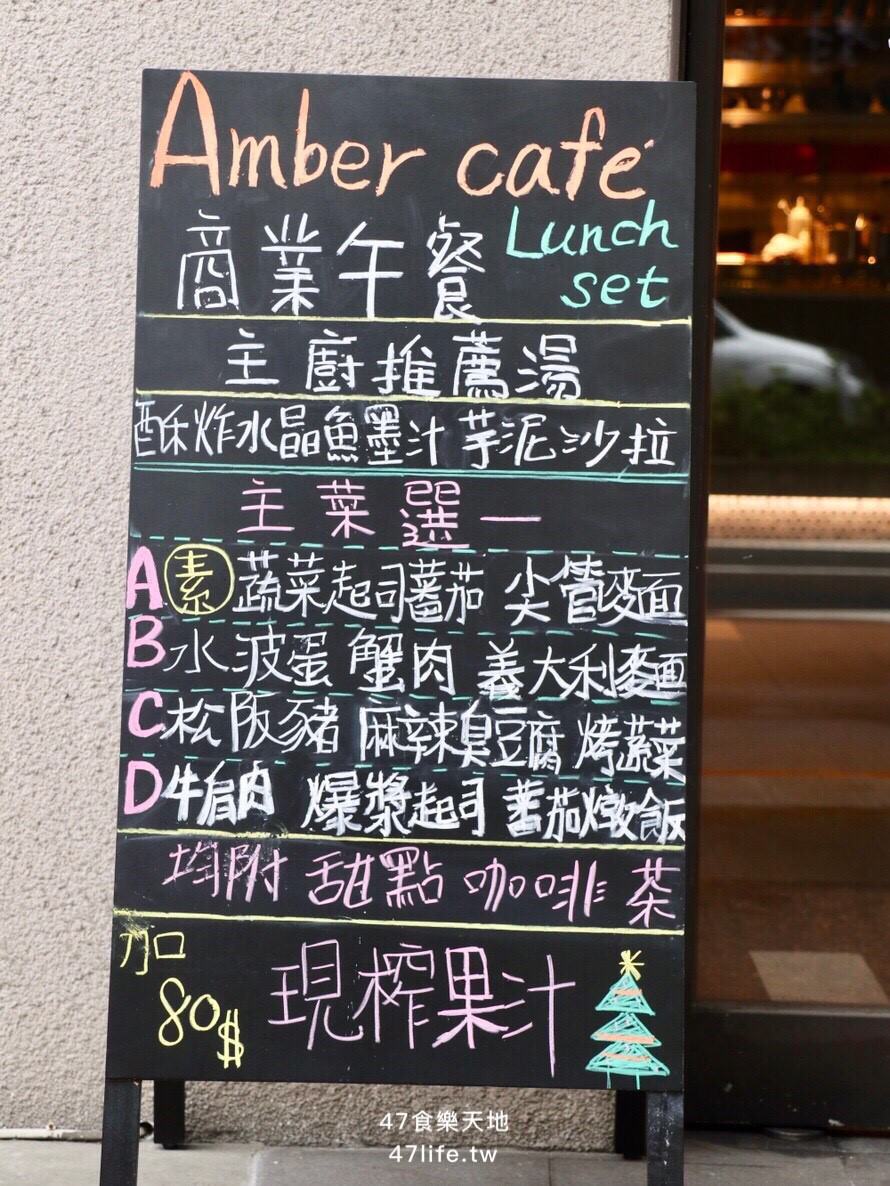 Amber café
商業午餐 Lunch set
主廚推薦湯
酥炸水晶魚墨汁芋泥沙拉
主菜選一
A 素 蔬菜起司蕃茄 尖管麵
B 水波蛋 蟹肉 義大利麵
C 松阪豬 麻辣臭豆腐 烤蔬菜
D 牛肩肉 爆漿起司 蕃茄燉飯
均附 甜點 咖啡 茶
加 80$ 現榨果汁
47食樂天地
47life.tw